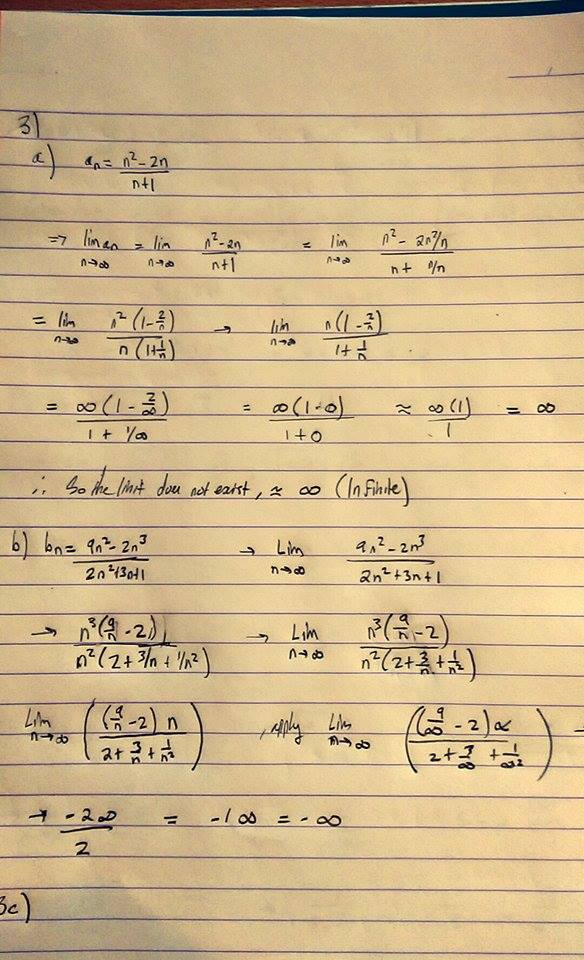 3)
a) aₙ = (n² - 2n)/(n+1)
=> lim n→∞ aₙ = lim n→∞ (n² - 2n)/(n+1) = lim n→∞ (n² - 2n²/n)/(n + n/n)
= lim n→∞ n²(1 - 2/n)/(n(1 + 1/n)) → lim n→∞ n(1 - 2/n)/(1 + 1/n)
= ∞(1 - 2/∞)/(1 + 1/∞) = ∞(1-0)/(1+0) ≈ ∞(1)/1 = ∞
∴ So the limit does not exist, ≈ ∞ (Infinite)
b) bₙ = (9n² - 2n³)/(2n²+3n+1) → Lim n→∞ (9n² - 2n³)/(2n²+3n+1)
→ n³(9/n - 2)/(n²(2 + 3/n + 1/n²)) → Lim n→∞ n³(9/n - 2)/(n²(2 + 3/n + 1/n²))
Lim n→∞ ((9/n - 2) n/(2 + 3/n + 1/n²)) , apply Lim n→∞ ((9/∞ - 2)∞/(2 + 3/∞ + 1/∞²)) →
→ -2∞/2 = -1∞ = -∞
3c)